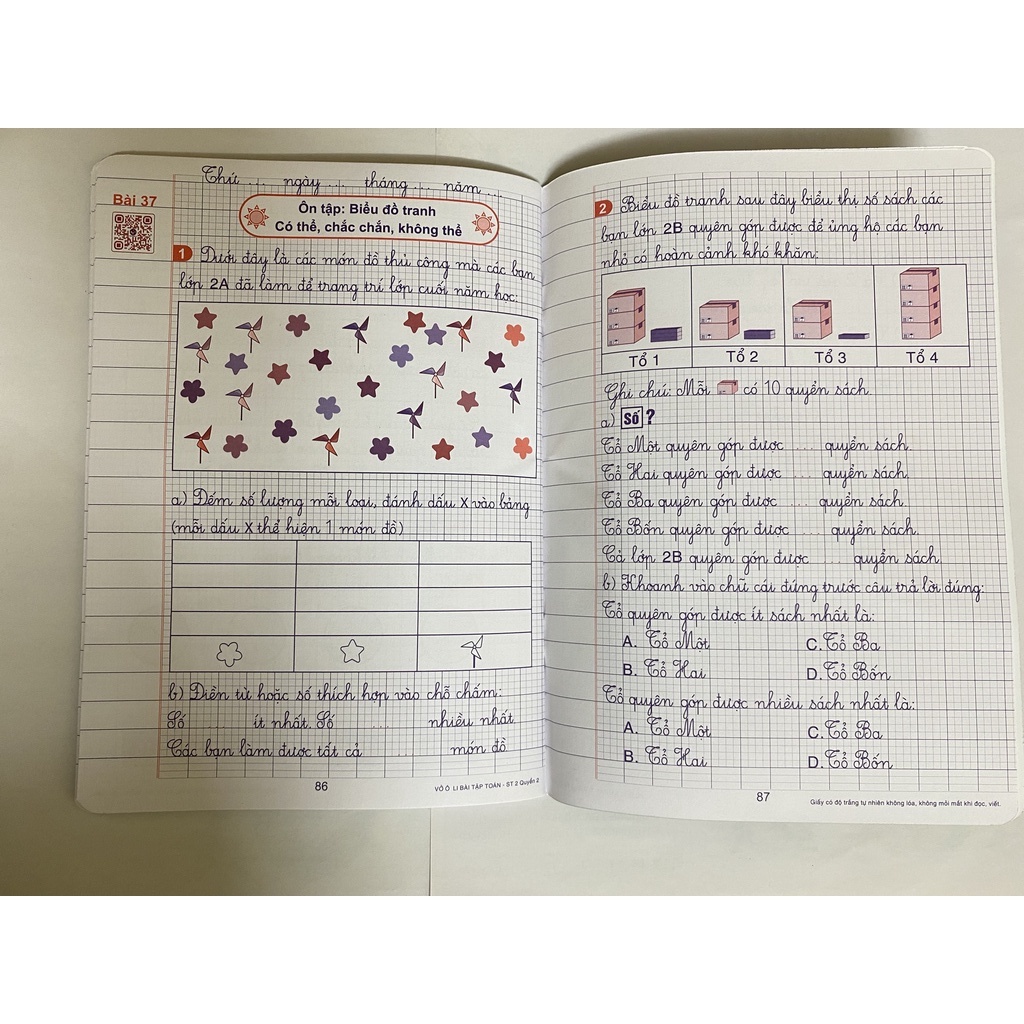 Thứ ... ngày ... tháng ... năm ...
Bài 37
Ôn tập: Biểu đồ tranh
Có thể, chắc chắn, không thể
1 Dưới đây là các món đồ thủ công mà các bạn
lớp 2A đã làm để trang trí lớp cuối năm học:
a) Đếm số lượng mỗi loại, đánh dấu X vào bảng
(mỗi dấu X thể hiện 1 món đồ)
b) Điền từ hoặc số thích hợp vào chỗ chấm:
Số ... ít nhất. Số ... nhiều nhất
Các bạn làm được tất cả ... món đồ
86
VỞ Ô LI BÀI TẬP TOÁN - ST 2 Quyển 2
2 Biểu đồ tranh sau đây biểu thị số sách các
bạn lớp 2B quyên góp được để ủng hộ các bạn
nhỏ có hoàn cảnh khó khăn:
Tổ 1 Tổ 2 Tổ 3 Tổ 4
Ghi chú: Mỗi có 10 quyển sách.
a) Số ?
Tổ Một quyên góp được ... quyển sách.
Tổ Hai quyên góp được ... quyển sách.
Tổ Ba quyên góp được ... quyển sách.
Tổ Bốn quyên góp được ... quyển sách.
Cả lớp 2B quyên góp được ... quyển sách
b) Khoanh vào chữ cái đúng trước câu trả lời đúng:
Tổ quyên góp được ít sách nhất là:
A. Tổ Một C. Tổ Ba
B. Tổ Hai D. Tổ Bốn
Tổ quyên góp được nhiều sách nhất là:
A. Tổ Một C. Tổ Ba
B. Tổ Hai D. Tổ Bốn
87
Giấy có độ trắng tự nhiên không lóa, không mỏi mắt khi đọc, viết.